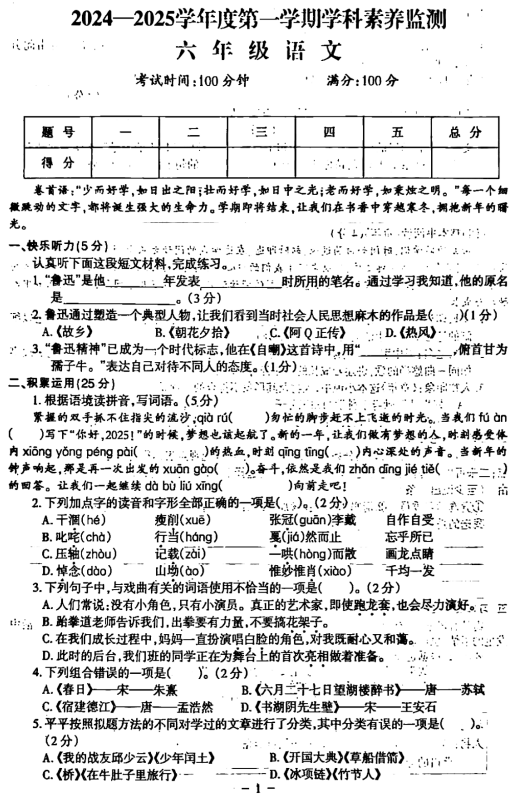 2024—2025学年度第一学期学科素养监测
六年级语文
考试时间:100分钟 满分:100分
题号 一 二 三 四 五 总分
得分
卷首语:“少而好学,如日出之阳;壮而好学,如日中之光;老而好学,如秉烛之明。”每一个细
微跳动的文字,都将诞生强大的生命力。学期即将结束,让我们在书香中穿越寒冬,拥抱新年的曙
光。
一、快乐听力(5分)
认真听下面这段短文材料,完成练习。
1.“鲁迅”是他________年发表________时所用的笔名。通过学习我知道,他的原名
是________。(3分)
2.鲁迅通过塑造一个典型人物,让我们看到当时社会人民思想麻木的作品是( )(1分)
A.《故乡》 B.《朝花夕拾》 C.《阿Q正传》 D.《热风》
3.“鲁迅精神”已成为一个时代标志,他在《自嘲》这首诗中,用“________,俯首甘为
孺子牛。”表达自己对待不同人的态度。(1分)
二、积累运用(25分)
1.根据语境读拼音,写词语。(5分)
紧握的双手抓不住指尖的流沙,qià rú( )匆忙的脚步赶不上飞逝的时光。当我们fú àn
( )写下“你好,2025!”的时候,梦想也该起航了。新的一年,让我们做有梦想的人,时刻感受体
内xiōng yǒng péng pài( )的热血,时刻qīng tīng( )内心深处的声音。当新年的
钟声响起,那是再一次出发的xuān gào( )。奋斗,依然是我们zhǎn dīng jié tiě( )
的回答。让我们一起继续dà bù liú xīng( )向前走吧!
2.下列加点字的读音和字形全部正确的一项是( )。(2分)
A.干涸(hé) 瘦削(xuē) 张冠(guān)李戴 自作自受
B.叱咤(chà) 行当(háng) 戛(jiá)然而止 忘乎所已
C.压轴(zhòu) 记载(zǎi) 一哄(hòng)而散 画龙点睛
D.悼念(dào) 山坳(ào) 惟妙惟肖(xiào) 千均一发
3.下列句子中,与戏曲有关的词语使用不恰当的一项是( )。(2分)
A.人们常说:没有小角色,只有小演员。真正的艺术家,即使跑龙套,也会尽力演好。
B.跆拳道老师告诉我们,出拳要有力量,不要搞花架子。
C.在我们成长过程中,妈妈一直扮演唱白脸的角色,对我既耐心又和蔼。
D.此时的后台,我们班的同学正在为舞台上的首次亮相做着准备。
4.下列组合错误的一项是( )。(2分)
A.《春日》——宋——朱熹 B.《六月二十七日望湖楼醉书》——唐——苏轼
C.《宿建德江》——唐——孟浩然 D.《书湖阴先生壁》——宋——王安石
5.平平按照拟题方法的不同对学过的文章进行了分类,其中分类有误的一项是( )。
(2分)
A.《我的战友邱少云》《少年闰土》 B.《开国大典》《草船借箭》
C.《桥》《在牛肚子里旅行》 D.《冰项链》《竹节人》
－1－